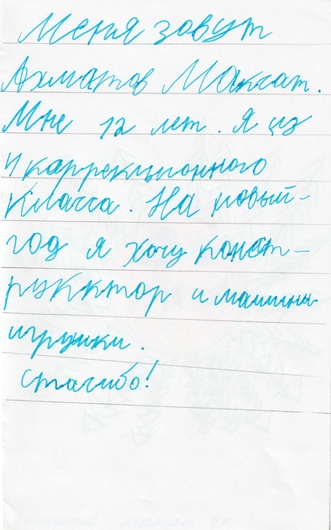 Меня зовут
Ахматов Максат.
Мне 12 лет. Я из
4 каррекционного
класса. На новый-
год я хочу конст-
рукктор и машины
игрушки.
спасибо!